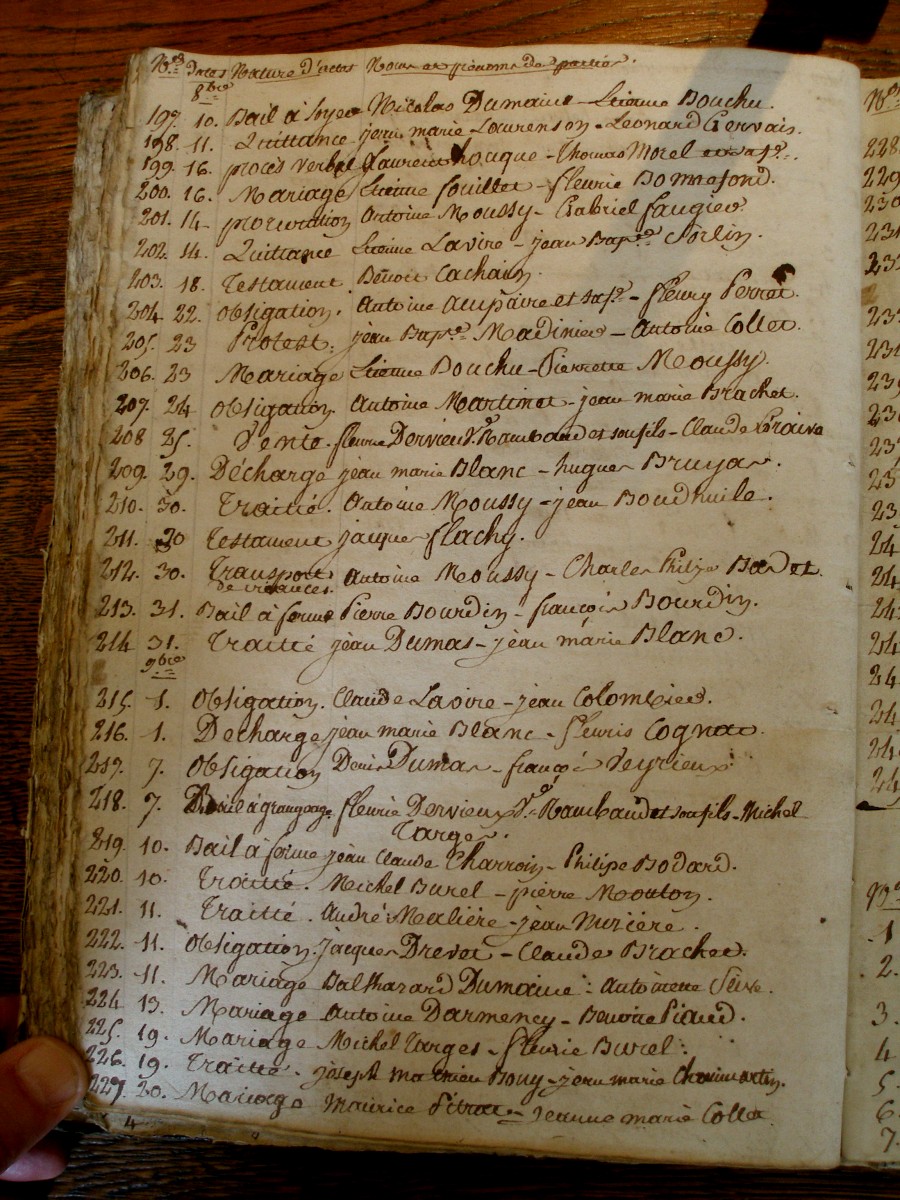 Nos Dates Nature d'actes Noms et prénoms des parties.
8bre
197. 10. Bail à loyer Nicolas Dumaine - Etienne Bouchu.
198. 11. Quittance jean marie Laurenson - Leonard Gervais.
199. 16. procès verbal Laurent - Thomas Morel
200. 16. Mariage Etienne fouillet - fleurie Bonnefond.
201. 14 procuration Antoine Moussy - Gabriel faugier
202. 14. Quittance Etienne Lavire - jean Bapte Sorlin.
203. 18. Testament Benoit Cachain.
204. 22. obligation. Antoine et sa fe - fleury Perret.
205. 23 Protest. jean Bapte Madinier - Antoine Collet.
206. 23 Mariage Etienne Bouchu - Pierrette Moussy.
207. 24 obligation. Antoine Martinet - jean marie Brachet.
208 25. Vente. fleurie Dervieux Ve Rambaud et son fils - Claude
209. 29. Décharge jean marie Blanc - hugues Bruyas.
210. 30. Traitté. Antoine Moussy - jean Boudhuile.
211. 30 Testament jacques flachy.
212. 30. Transport Antoine Moussy - Charles Philipe Bardet.
de créances.
213. 31. Bail à ferme Pierre Bourdin - françois Bourdin.
214 31. Traitté jean Dumas - jean marie Blanc.
9bre
215. 1. Obligation. Claude Lavire - jean Colombier.
216. 1. Décharge jean marie Blanc - fleuris Cognat
217. 7. Obligation Denis Dumas - françois Veyrieux
218. 7 Bail à grangeage fleurie Dervieux Ve Rambaud et son fils - Michel
Targes.
219. 10. Bail à ferme jean Claude Charroin - Philipe Bodard.
220. 10. Traitté. Michel Burel - pierre Mouton.
221. 11. Traitté. André Malière - jean Murière.
222. 11. Obligation. jacques Drevet - Claude Brachet.
223. 11. Mariage Balthazard Dumaine : Antoinette Sève.
224 13. Mariage Antoine Darmency - Benoite Piaud.
225. 19. Mariage Michel Targes - fleurie Burel.
226. 19. Traitté. joseph mathieu Bouy - jean marie
227. 20. Mariage Maurice Pitrat - jeanne marie Collet
4
Nos
228
229
230
231
1
2.
3.
4
5.
6.
7.